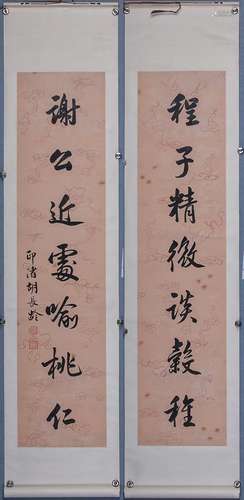 程子精微談穀種
謝公近處喻桃仁
印渚胡長齡